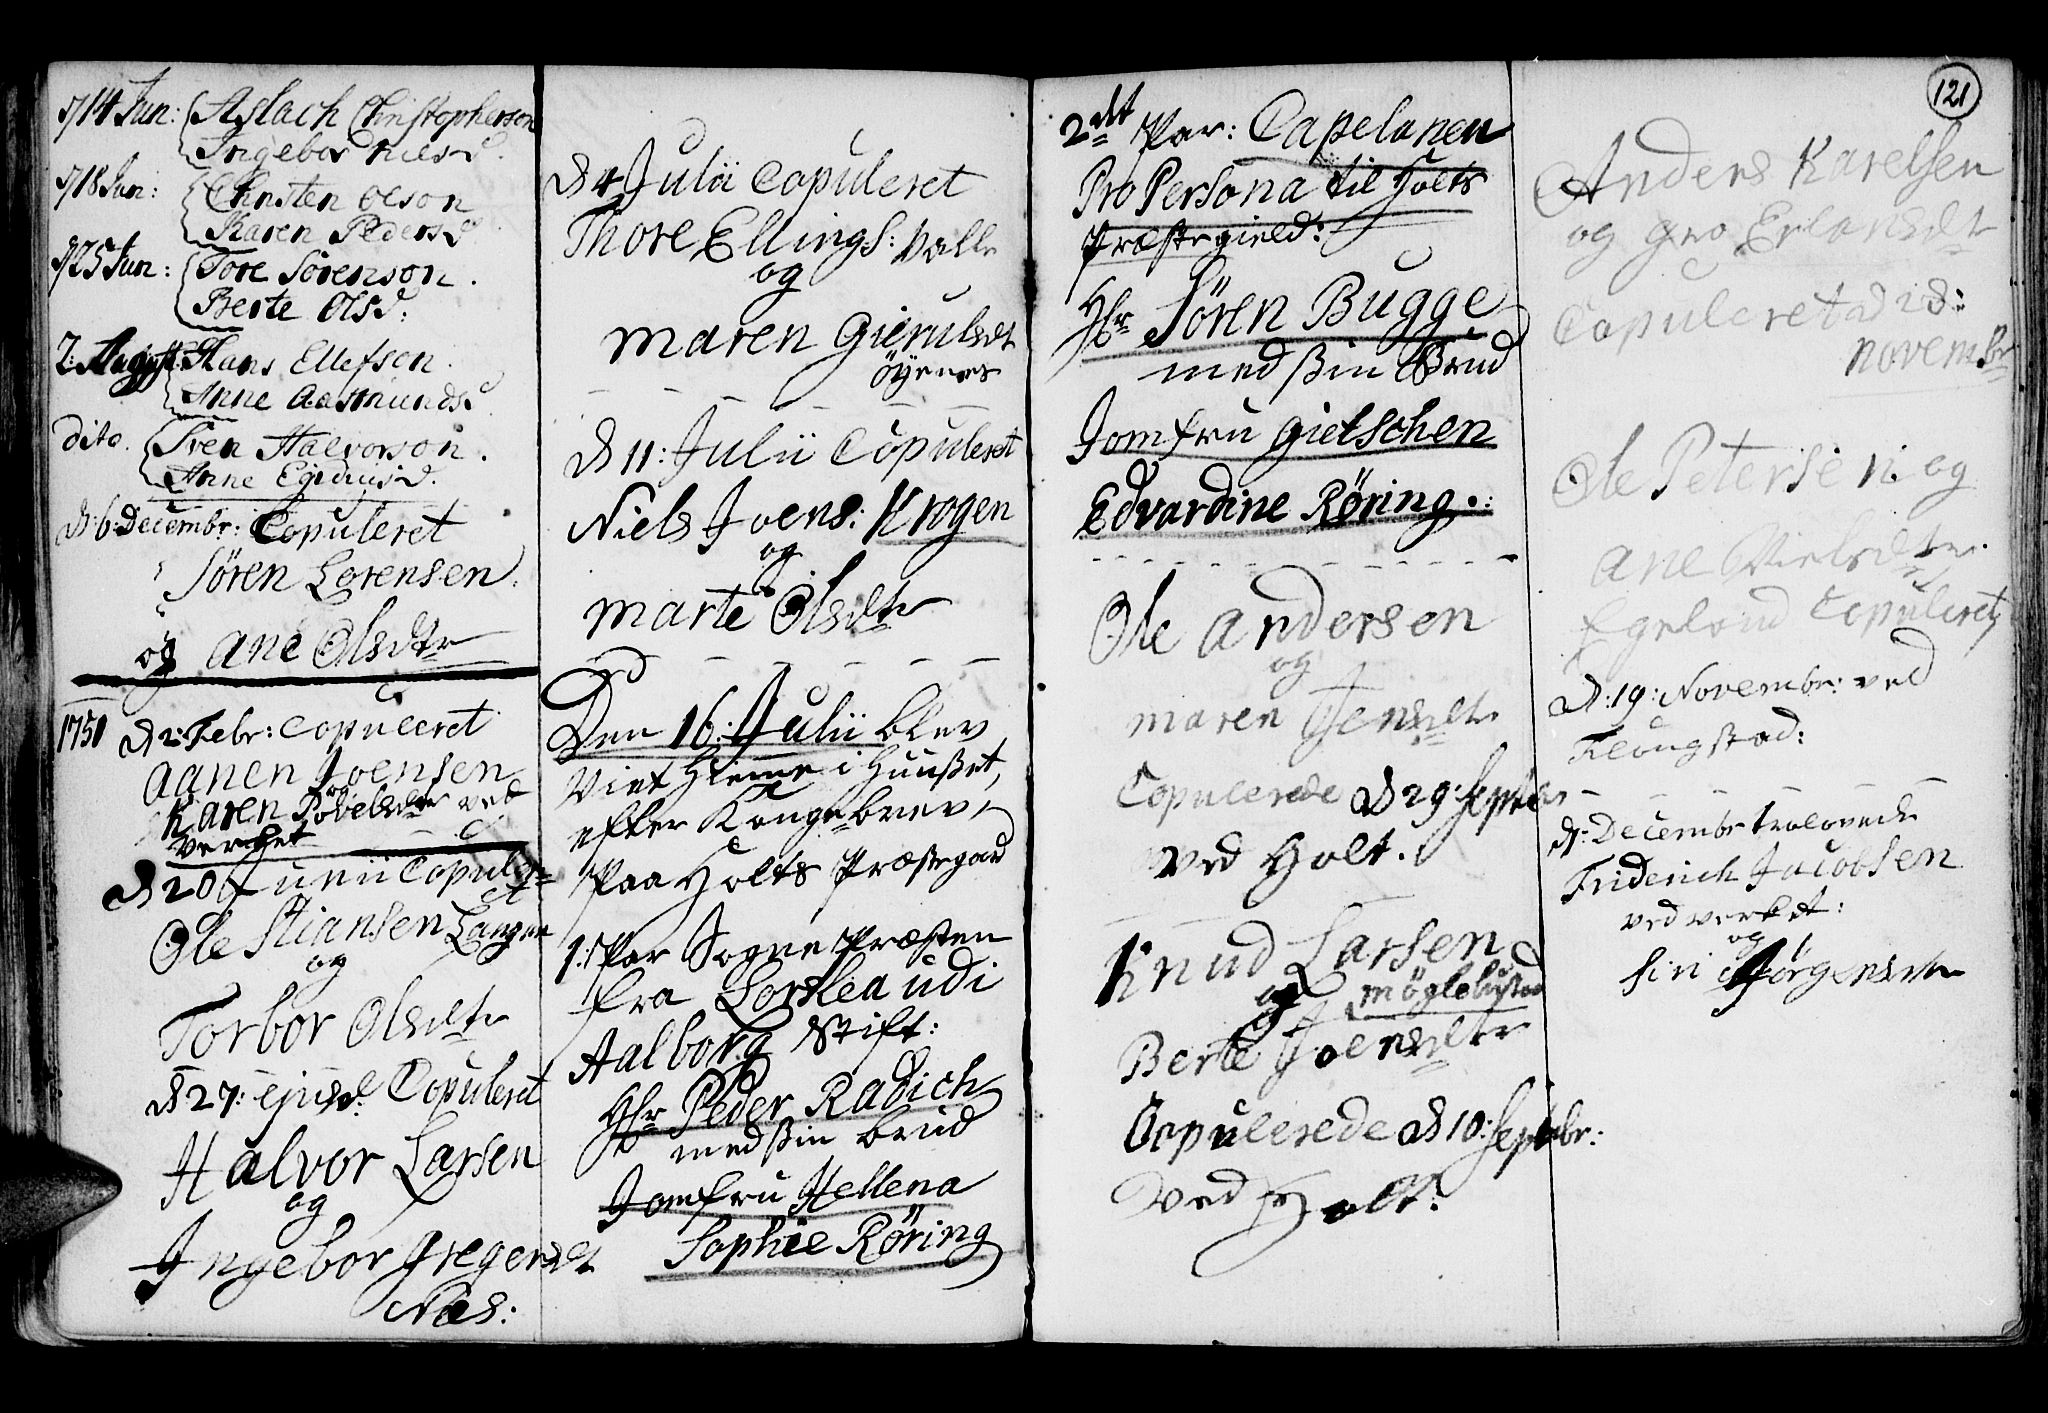 d 14 Jun: Aslach Christopherson
Ingebor Nielsd.
d 18 Jun: Christen Olson
Karen Pedersd
d 25 Jun: Tore Sørenson.
Berte Olsd:
2: August: Hans Ellefson.
Anne Aasmundsd.
dito. Sven Halvorson.
Anne Egidiusd.
d: 6: Decembr: Copuleret
Søren Lorensen
og Ane Olsdtr
1751 d 2: Febr: Copuleret
Aanen Joensen
og
Karen Povelsdtr ved
Verchet
d 20 Junii Copuler-
et
Ole Stiansen Langan
og
Torbor Olsdtr
d 27: ejusd: Copuleret
Halvor Larsen
og
Ingebor Gregersdt
Næs:
d 4 Julii Copuleret
Thore Ellings: Valle
og
Maren Gierulsdt
Øyenes
d 11: Julii Copuleret
Niels Joens: Krogen
og
Marte Olsdtr
Den 16: Julii blev
Viet Hieme i Huusset,
efter Konge-brev,
Paa Holts Præstegard
1: Par Sogne Præsten
fra Lorslea udi
Aalborg Stift:
Hr Peder Radich
med ßin brud
Jomfru Hellena
Sophie Røring
2det Par: Capelanen
Pro Persona til Holts
Præstegield:
Hr Søren Bugge
med ßin Brud
Jomfru Gietschen
Edvardine Røring.:
Ole Andersen
og
Maren Jensdtr
Copulerede d 29: Septbr
ved Holt.
Knud Larsen
og Møglebustad
Berte Joensdtr
Copulerede d 10: Septbr:
Ved Holt:
121
Anders Karelsen
og Gro Erlandsdtr
Copuleret d 12:
Novembr
Ole Petersen og
Ane Nielsdtr
Egeland Copuleret
d: 19: Novembr: ved
Flougstad:
d: Decembr trolovede
Friderich Jacobsen
ved verket:
og
Siri Jørgensdtr